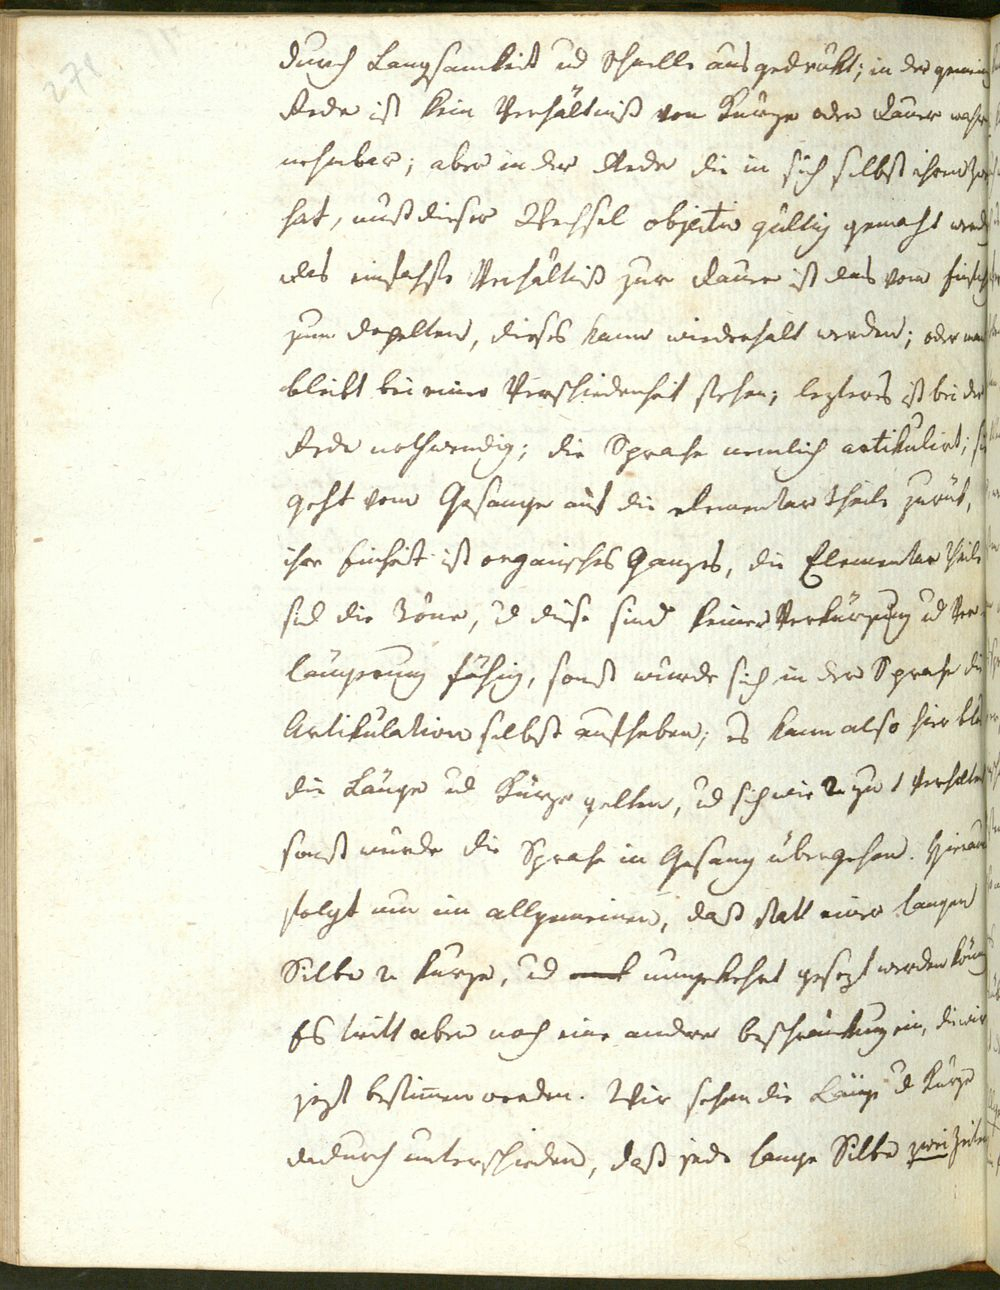 271
durch Langsamkeit ud Schnelle ausgedrükt; in der gemein
Rede ist kein Verhältniß von Kürze oder Dauer wahr
nehmbar; aber in der Rede die in sich selbst ihren Zw
hat, muß dieser Wechsel objectiv gültig gemacht werd
das einfachste Verhältniß zur Dauer ist das vom Einfach
zum dopelten, dieses kann wiederhalt werden; oder man
bleibt bei einer Verschiedenheit stehen; lezteres ist bei der
Rede nothwendig; die Sprache nemlich artikulirt, sie
geht vom Gesange auf die elementar Theile zurük,
ihre Einheit ist organisches Ganzes, die Elementar Theile
sid die Töne, ud diese sind keiner Verkürzung ud Ver-
längerung fähig, sonst würde sich in der Sprache die
Artikulation selbst aufheben; es kann also hier blos
die Länge ud Kürze gelten, ud sich wie 2 zu 1 verhalten
sonst würde die Sprache in Gesang übergehen. Hieraus
folgt nun im allgemeinen, daß statt einer langen
Silbe 2 kurze, ud umgekehrt gesezt werden könn
Es tritt aber noch eine andere Beschränkung ein, die wir
jezt bestimmen werden. Wir sehen die Länge ud Kürze
dadurch unterschieden, daß jede lange Silbe zwei Zeiten